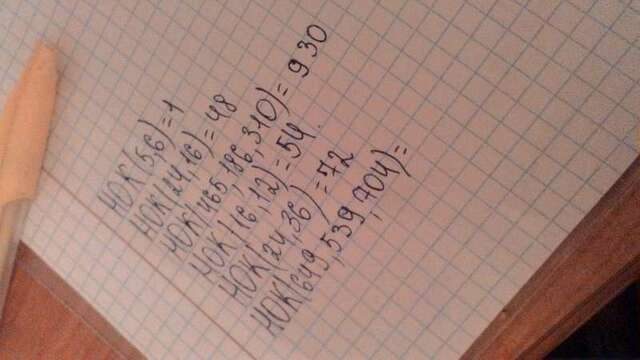 НОК(5,6)=1
НОК(24,16)=48
НОК(465,186,310)=930
НОК(16,12)=54.
НОК(24,36)=72
НОК(649,539,704)=